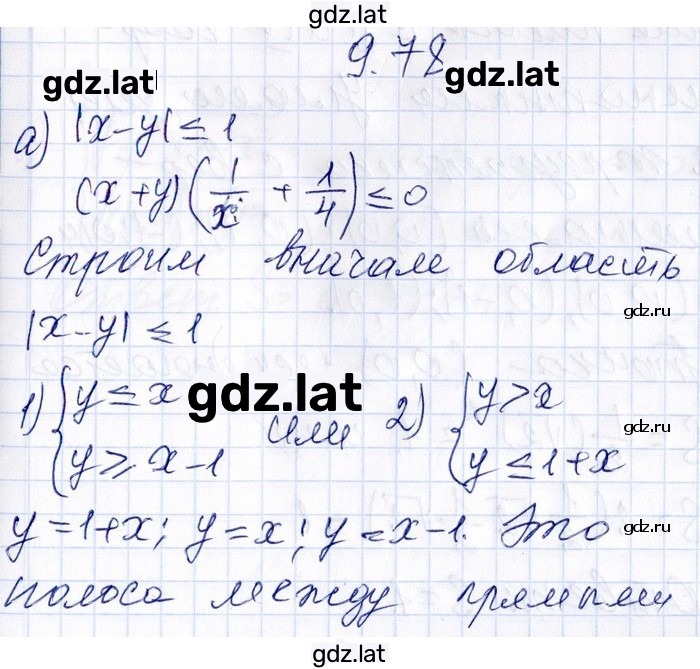 gdz.lat
9.78
gdz.lat
а) |x-y| ≤ 1
(x+y)(1/x + 1/4) ≤ 0
Строим вначале область
gdz.ru
|x-y| ≤ 1
gdz.lat
1) { y ≤ x
y ≥ x-1
или 2) { y > x
y ≤ 1+x
gdz.ru
y = 1+x; y = x; y = x-1. Это
gdz.ru
полоса между прямыми
gdz.lat